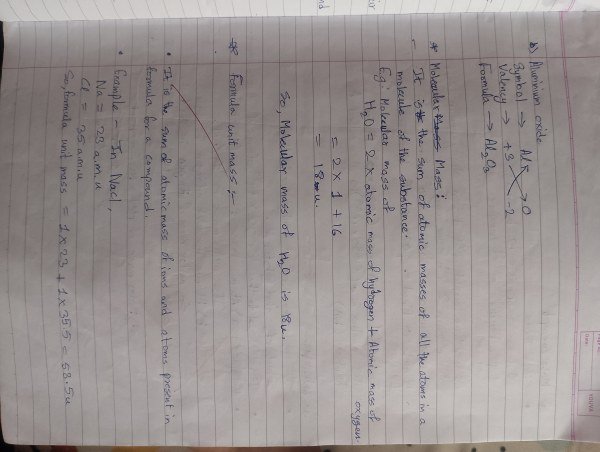 b) Aluminum oxide
Symbol → Al O
Valency → +3 -2
Formula → Al2O3
Molecular Mass :
It is the sum of atomic masses of all the atoms in a
molecule of the substance.
E.g: Molecular mass of
H2O = 2 x atomic mass of hydrogen + Atomic mass of
oxygen.
= 2 x 1 + 16
= 18 u.
So, Molecular mass of H2O is 18u.
Formula unit mass :-
• It is the sum of atomic mass of ions and atoms present in
formula for a compound.
• Example - In NaCl,
Na = 23 a.m.u
Cl = 35 a.m.u
So formula unit mass = 1x23 + 1x35.5 = 58.5u
YOUVA